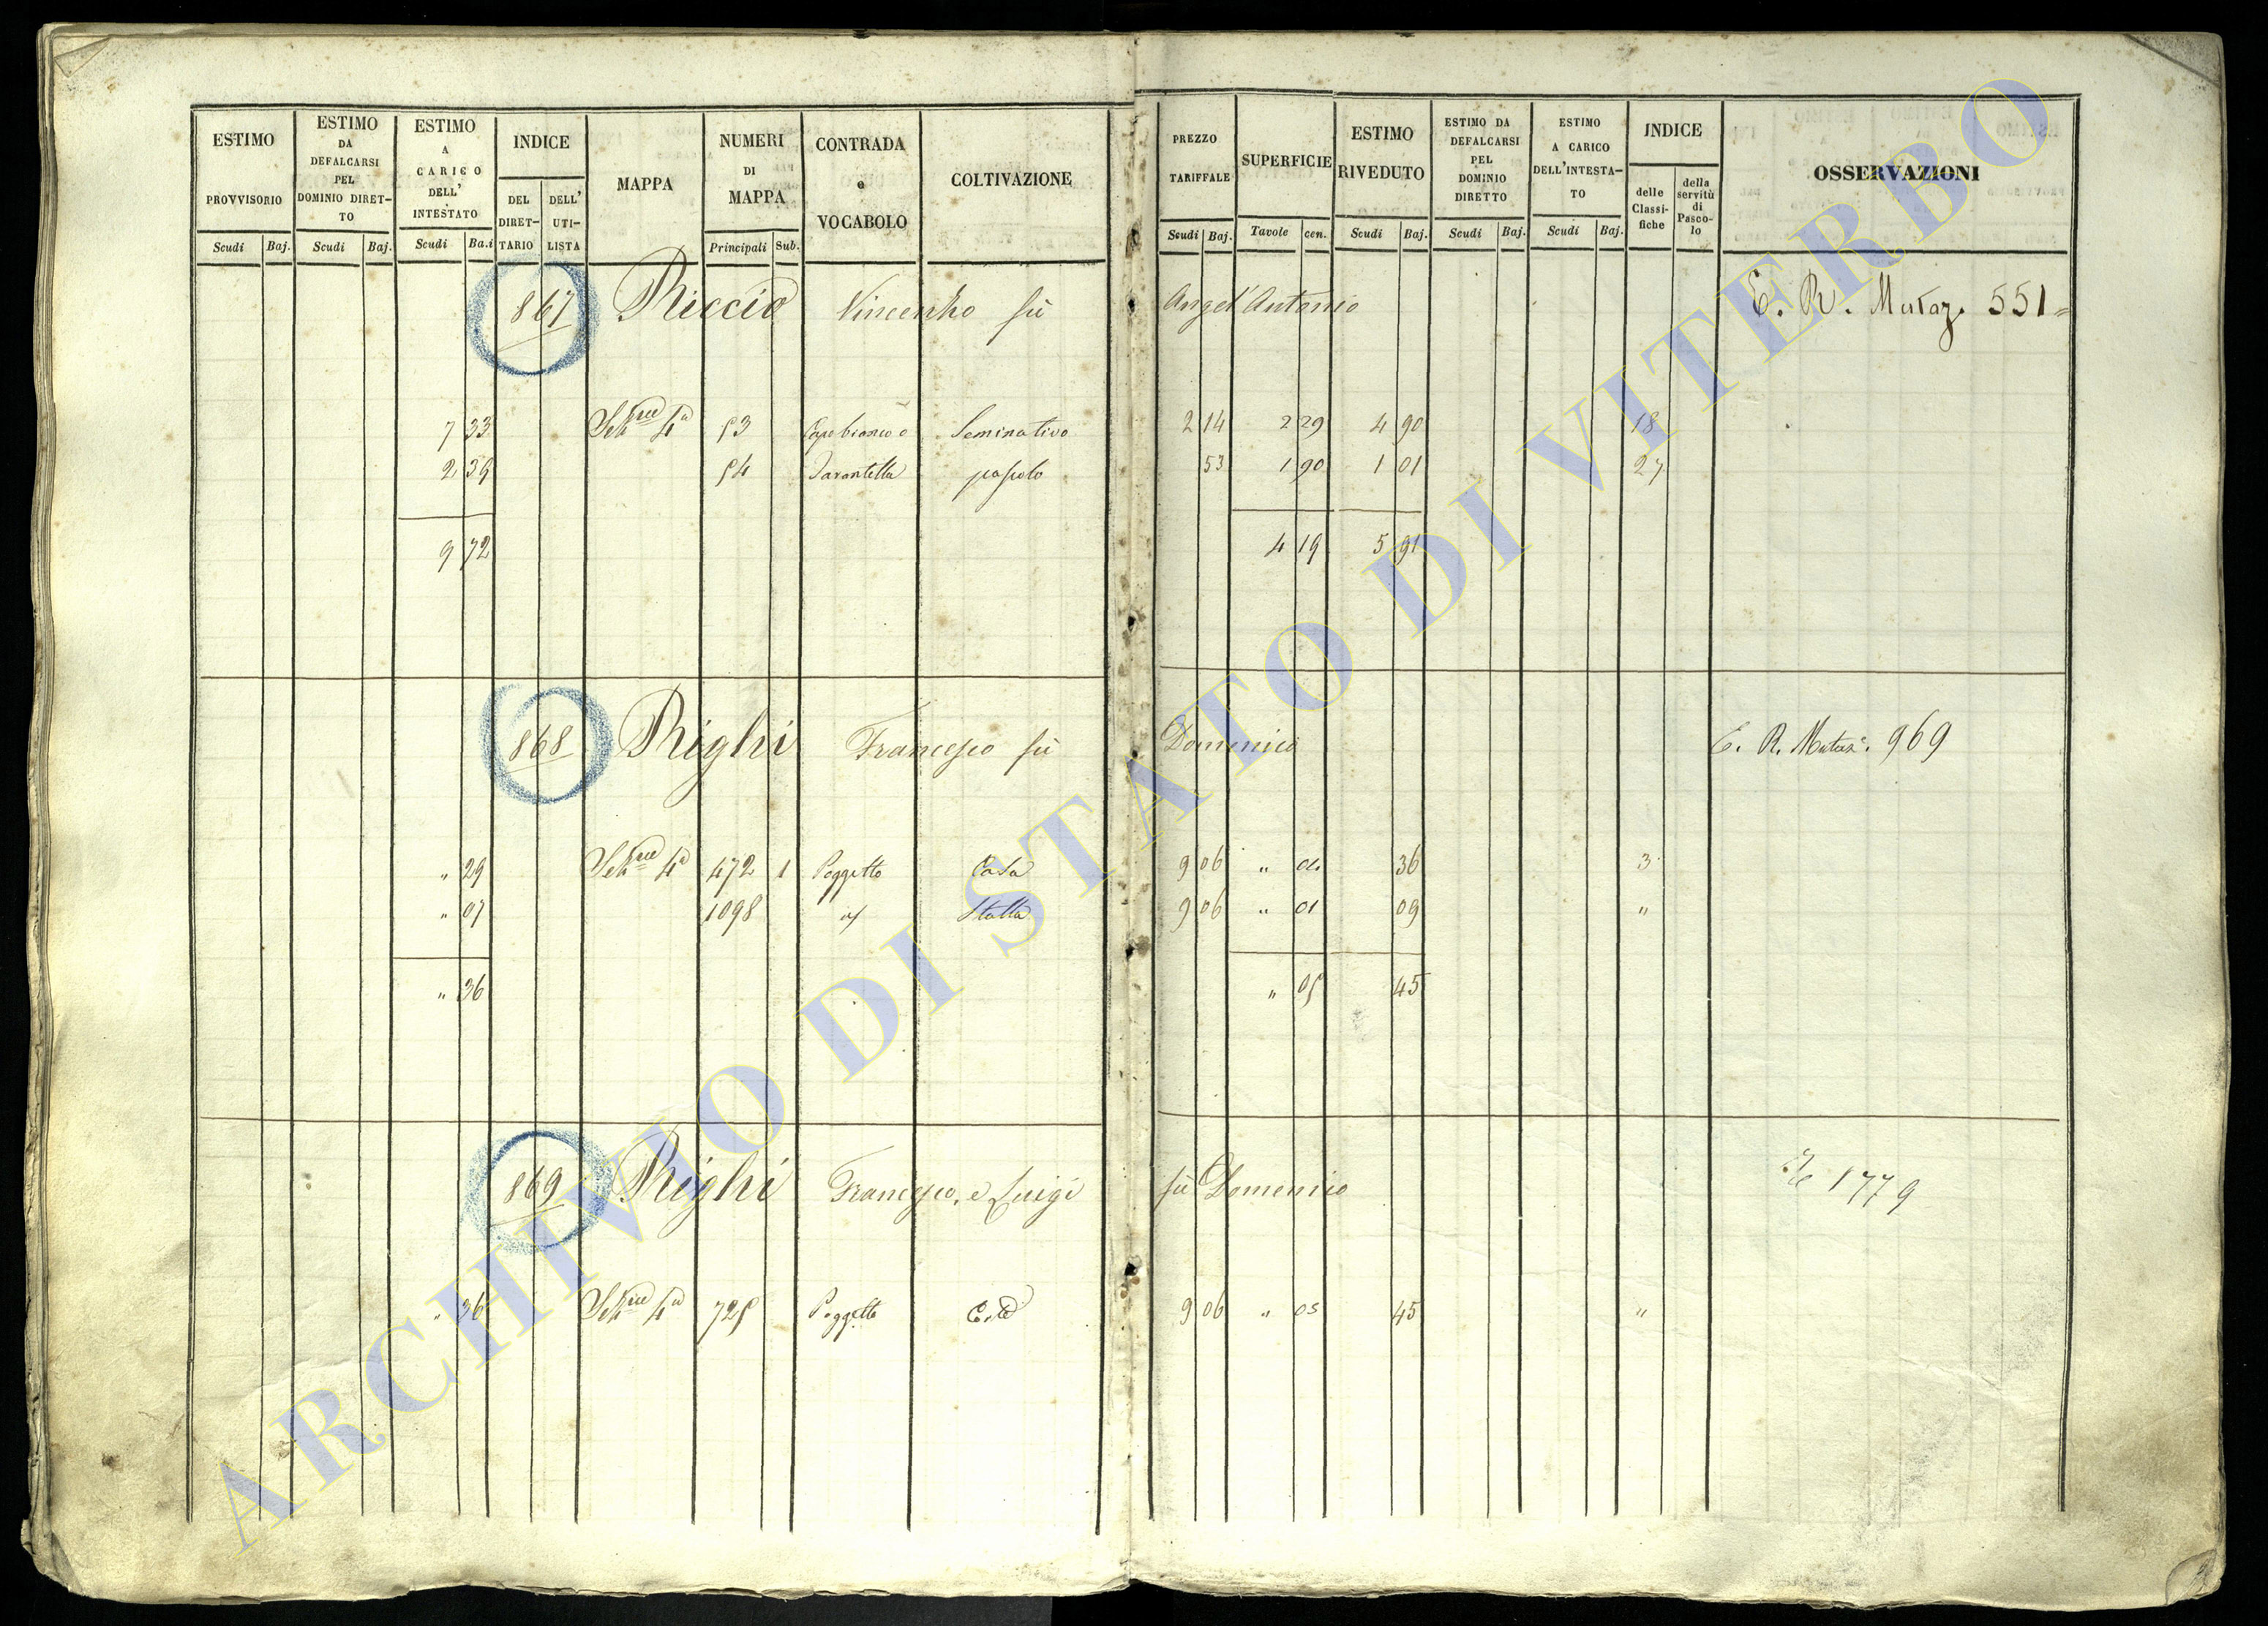 ESTIMO PROVVISORIO
Scudi Baj.
ESTIMO DA DEFALCARSI PEL DOMINIO DIRET-TO
Scudi Baj.
ESTIMO A CARICO DELL' INTESTATO
Scudi Ba.i
INDICE
DEL DIRET-TARIO
DELL' UTI-LISTA
MAPPA
NUMERI DI MAPPA
Principali Sub.
CONTRADA e VOCABOLO
COLTIVAZIONE
PREZZO TARIFFALE
Scudi Baj.
SUPERFICIE
Tavole cen.
ESTIMO RIVEDUTO
Scudi Baj.
ESTIMO DA DEFALCARSI PEL DOMINIO DIRETTO
Scudi Baj.
ESTIMO A CARICO DELL'INTESTA-TO
Scudi Baj.
INDICE
delle Classi-fiche
della servitù di Pasco-lo
OSSERVAZIONI
867 Riccio Vincenzo fù Angel'Antonio E. R. Mutaz. 551=
7 33 4a 53 Capobianco o Seminativo 2 14 2 29 4 90 18
2 39 54 Tarantella pascolo 53 1 90 1 01 27
9 72 4 19 5 91
868 Righi Francesco fù Domenico E. R. Mutaz. 969
" 29 4a 472 1 Poggetto Casa 9 06 " 04 36 3
" 07 1098 Stalla 9 06 " 01 09 "
" 36 " 05 45
869 Righi Francesco, e Luigi fù Domenico 1779
" 36 4a 725 Poggetto Corte 9 06 " 05 45 "
ARCHIVIO DI STATO DI VITERBO